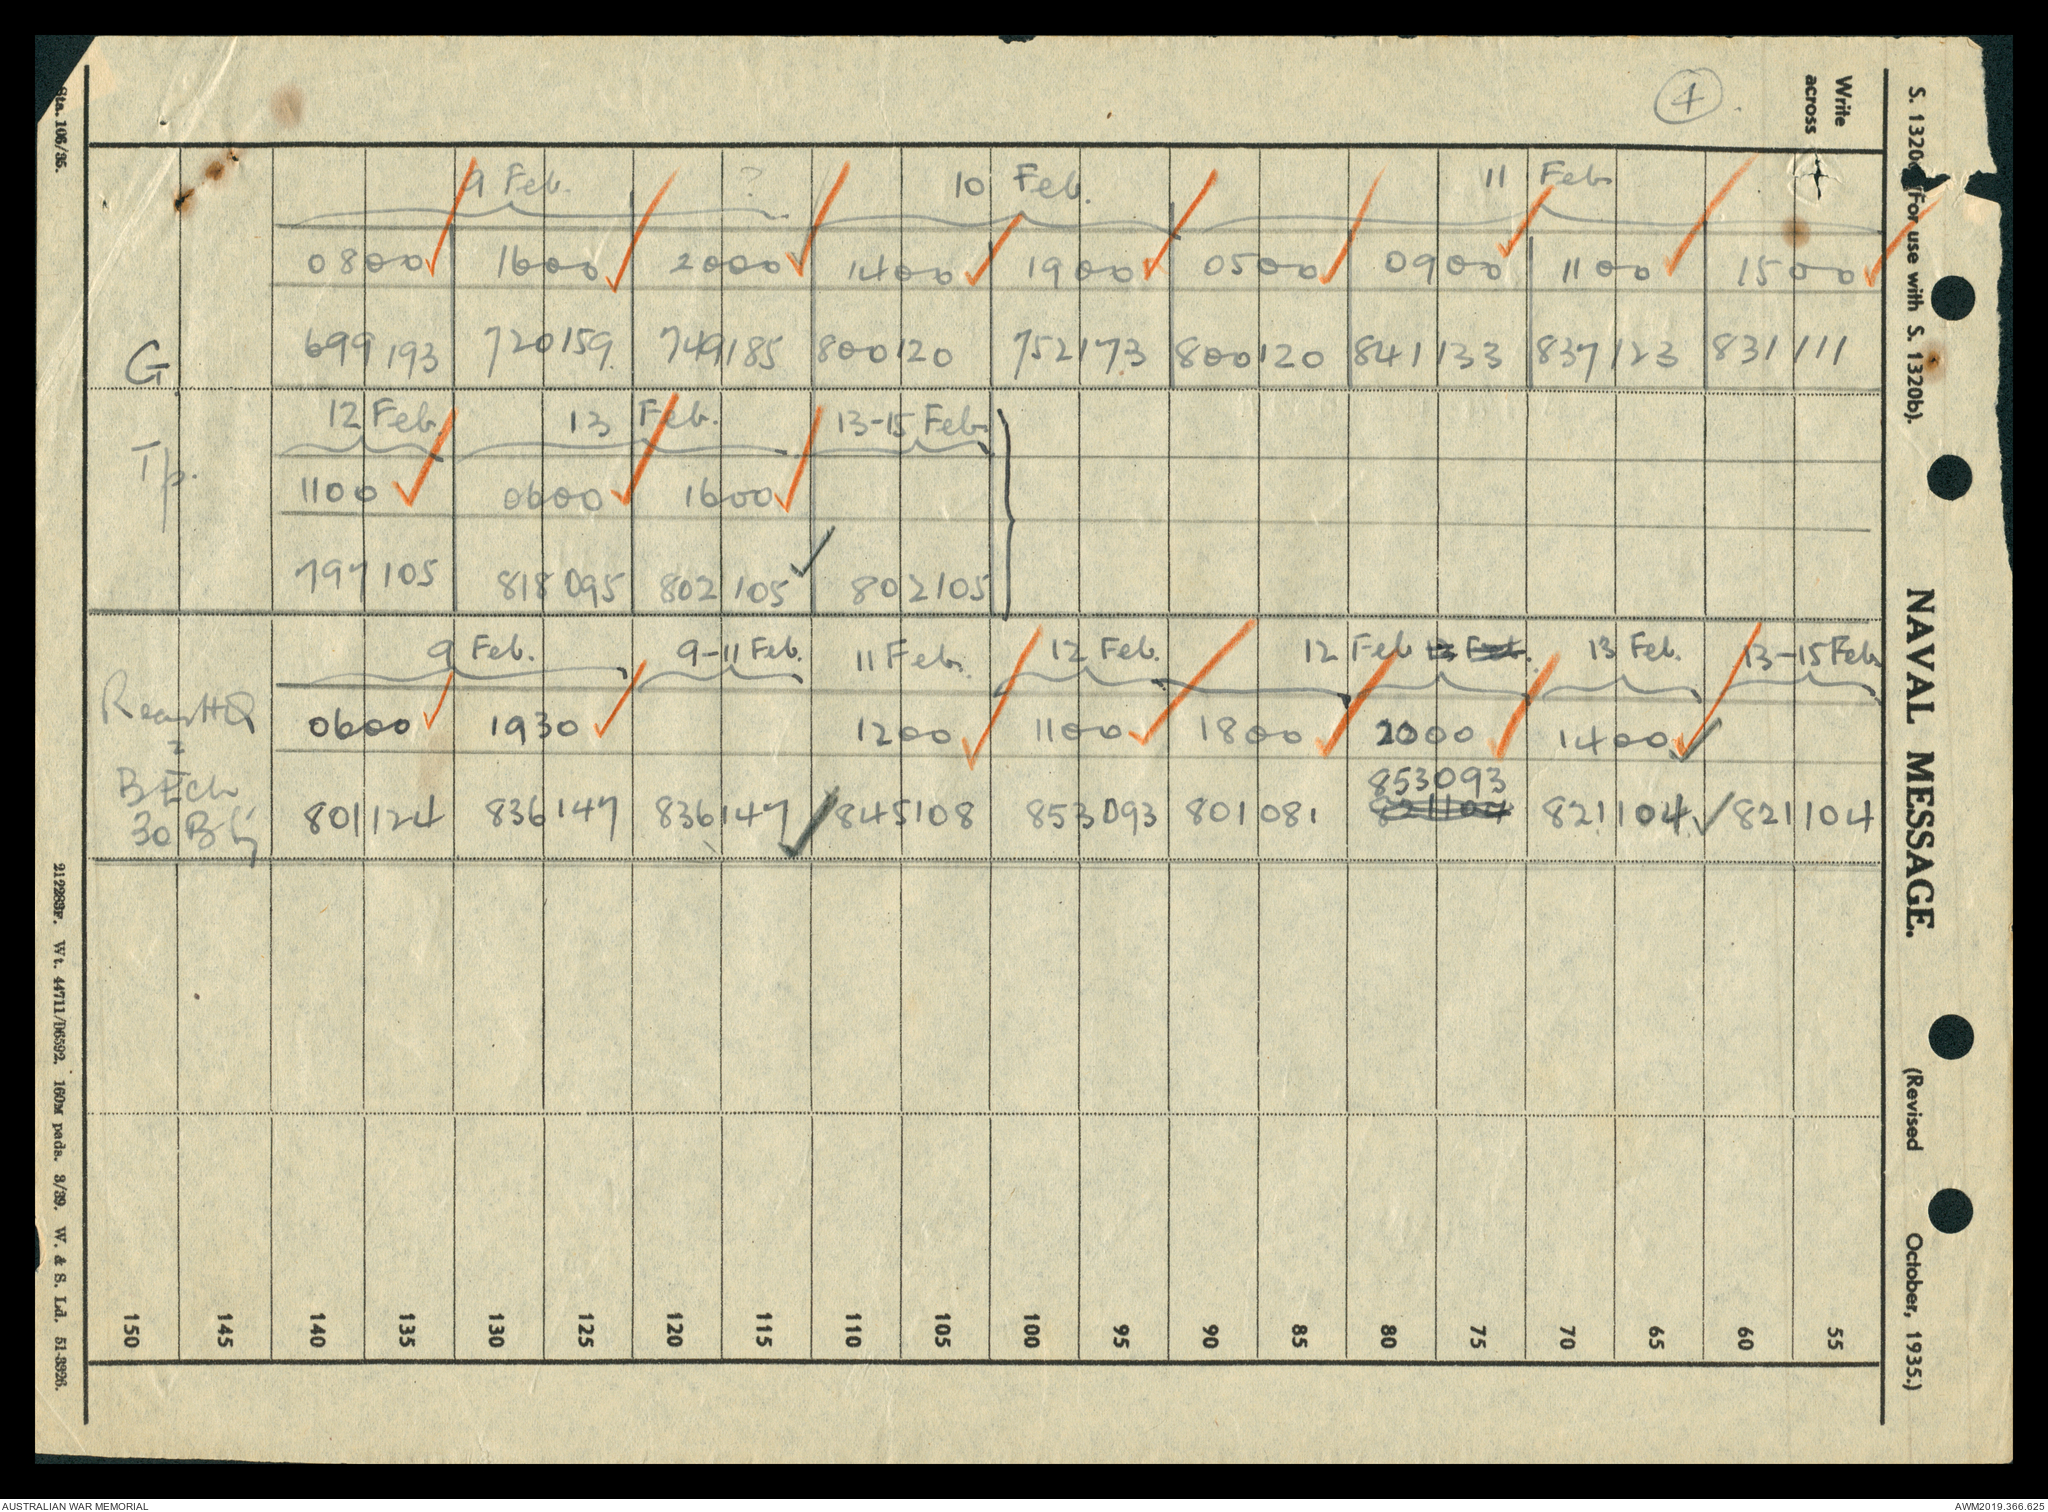 4
Write across
S. 1320c (For use with S. 1320b).
NAVAL MESSAGE.
(Revised October, 1935.)
Sta. 106/35.
9 Feb. ? 10 Feb. 11 Feb
0800 1600 2000 1400 1900 0500 0900 1100 1500
G 699193 720159 749185 800120 752173 800120 841133 837123 831111
12 Feb. 13 Feb. 13-15 Feb.
Tp.
1100 0600 1600
797105 818095 802105 802105
9 Feb. 9-11 Feb. 11 Feb. 12 Feb. 12 Feb 13 Feb. 13 Feb. 13-15 Feb
Rear HQ 0600 1930 1200 1100 1800 2000 1400
=
853093
B Ech 801124 836147 836147 845108 853093 801081 821104 821104 821104
30 Bty
212283F. Wt. 44711/D6592. 160M pads. 3/39. W. & S. Ld. 51-3926.
150 145 140 135 130 125 120 115 110 105 100 95 90 85 80 75 70 65 60 55
AUSTRALIAN WAR MEMORIAL
AWM2019.366.625